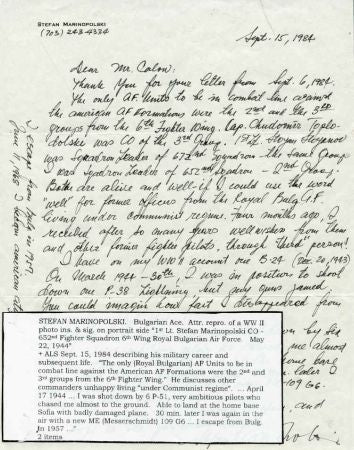 STEFAN MARINOPOLSKI
(703) 243-4334
Sept. 15, 1984
Dear Mr. Colon.
Thank You for your letter from Sept. 6, 1984
The only A.F. Units to be in combat line against
the american A.F. Formations were the 2nd and the 3rd
groups from the 6th Fighter Wing. Cap. Chudomir Toplo-
dolski was CO of the 3rd Group. 1st Lt. Stoyan Stoyanov
was Squadron Leader of 672nd Squadron - the same Group
I was Squadron Leader of 652nd Squadron - 2nd Group.
Both are alive and well - if I could use the word
well for former officers from the Royal Bulg. A.F.
living under Communist regime. Four months ago, I
received after so many years well wishes from them
and other former fighter pilots, through third person!
I have on my WW2 account one B-24 (Dec. 20, 1943)
On March 1944 - 30th I was in position to shoot
down one P-38 Lightning but my guns jamed.
You could imagin how fast I disappeared from
STEFAN MARINOPOLSKI. Bulgarian Ace. Attr. repro. of a WW II
photo ins. & sig. on portrait side "1st Lt. Stefan Marinopolski CO -
652nd Fighter Squadron 6th Wing Royal Bulgarian Air Force. May
22, 1944"
+ ALS Sept. 15, 1984 describing his military career and
subsequent life. "The only (Royal Bulgarian) AF Units to be in
combat line against the American AF Formations were the 2nd and
3rd groups from the 6th Fighter Wing." He discusses other
commanders unhappy living "under Communist regime". ... April
17 1944 ... I was shot down by 6 P-51, very ambitious pilots who
chased me almost to the ground. Able to land at the home base
Sofia with badly damaged plane. 30 min. later I was again in the
air with a new ME (Messerschmidt) 109 G6 ... I escape from Bulg.
In 1957 ..."
2 items
109 G6.
and